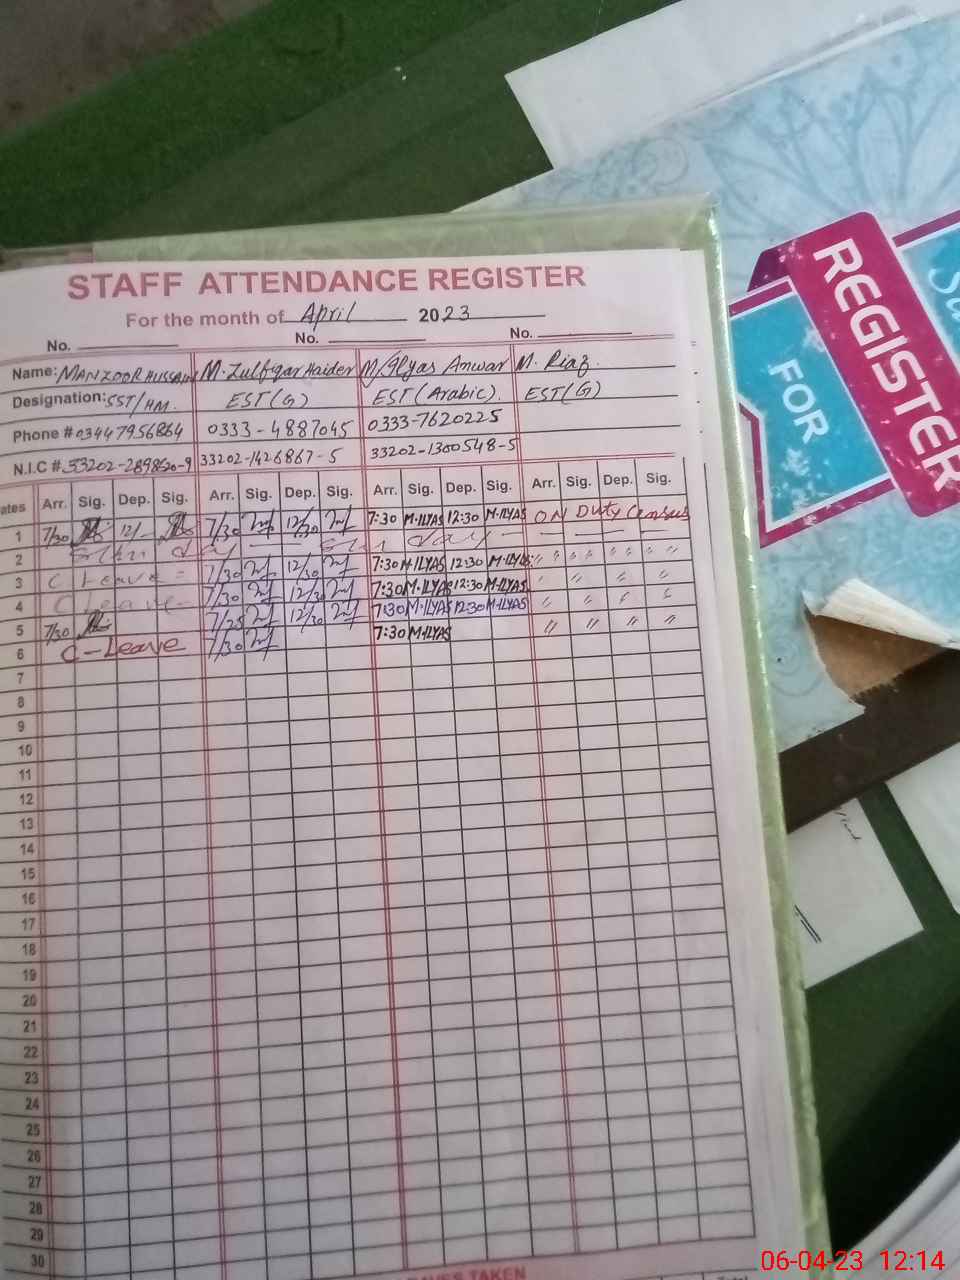 STAFF ATTENDANCE REGISTER
For the month of April 2023
No. No. No.
Name: MANZOOR HUSSAIN M. Zulfiqar Haider M/Ilyas Anwar M. Riaz.
Designation: SST/HM. EST(G) EST(Arabic). EST(G)
Phone # 03447956864 0333-4887045 0333-7620225
N.I.C #. 33202-1426867-5 33202-1300548-5
ates Arr. Sig. Dep. Sig. Arr. Sig. Dep. Sig. Arr. Sig. Dep. Sig. Arr. Sig. Dep. Sig.
1 7/30 12/- 7/30 12/30 7:30 M.ILYAS 12:30 M.ILYAS ON Duty Census
2 day day
3 C Leave 7/30 12/30 7:30 M.ILYAS 12:30 M.ILYAS " " " "
4 C Leave 7/30 12/30 7:30 M.ILYAS 12:30 M.ILYAS " " " "
5 7/30 7/25 12/30 7:30 M.ILYAS 12:30 M.ILYAS " " " "
6 C-Leave 7/30 7:30 M.ILYAS " " " "
7
8
9
10
11
12
13
14
15
16
17
18
19
20
21
22
23
24
25
26
27
28
29
30
TAKEN
REGISTER
FOR
06-04-23 12:14